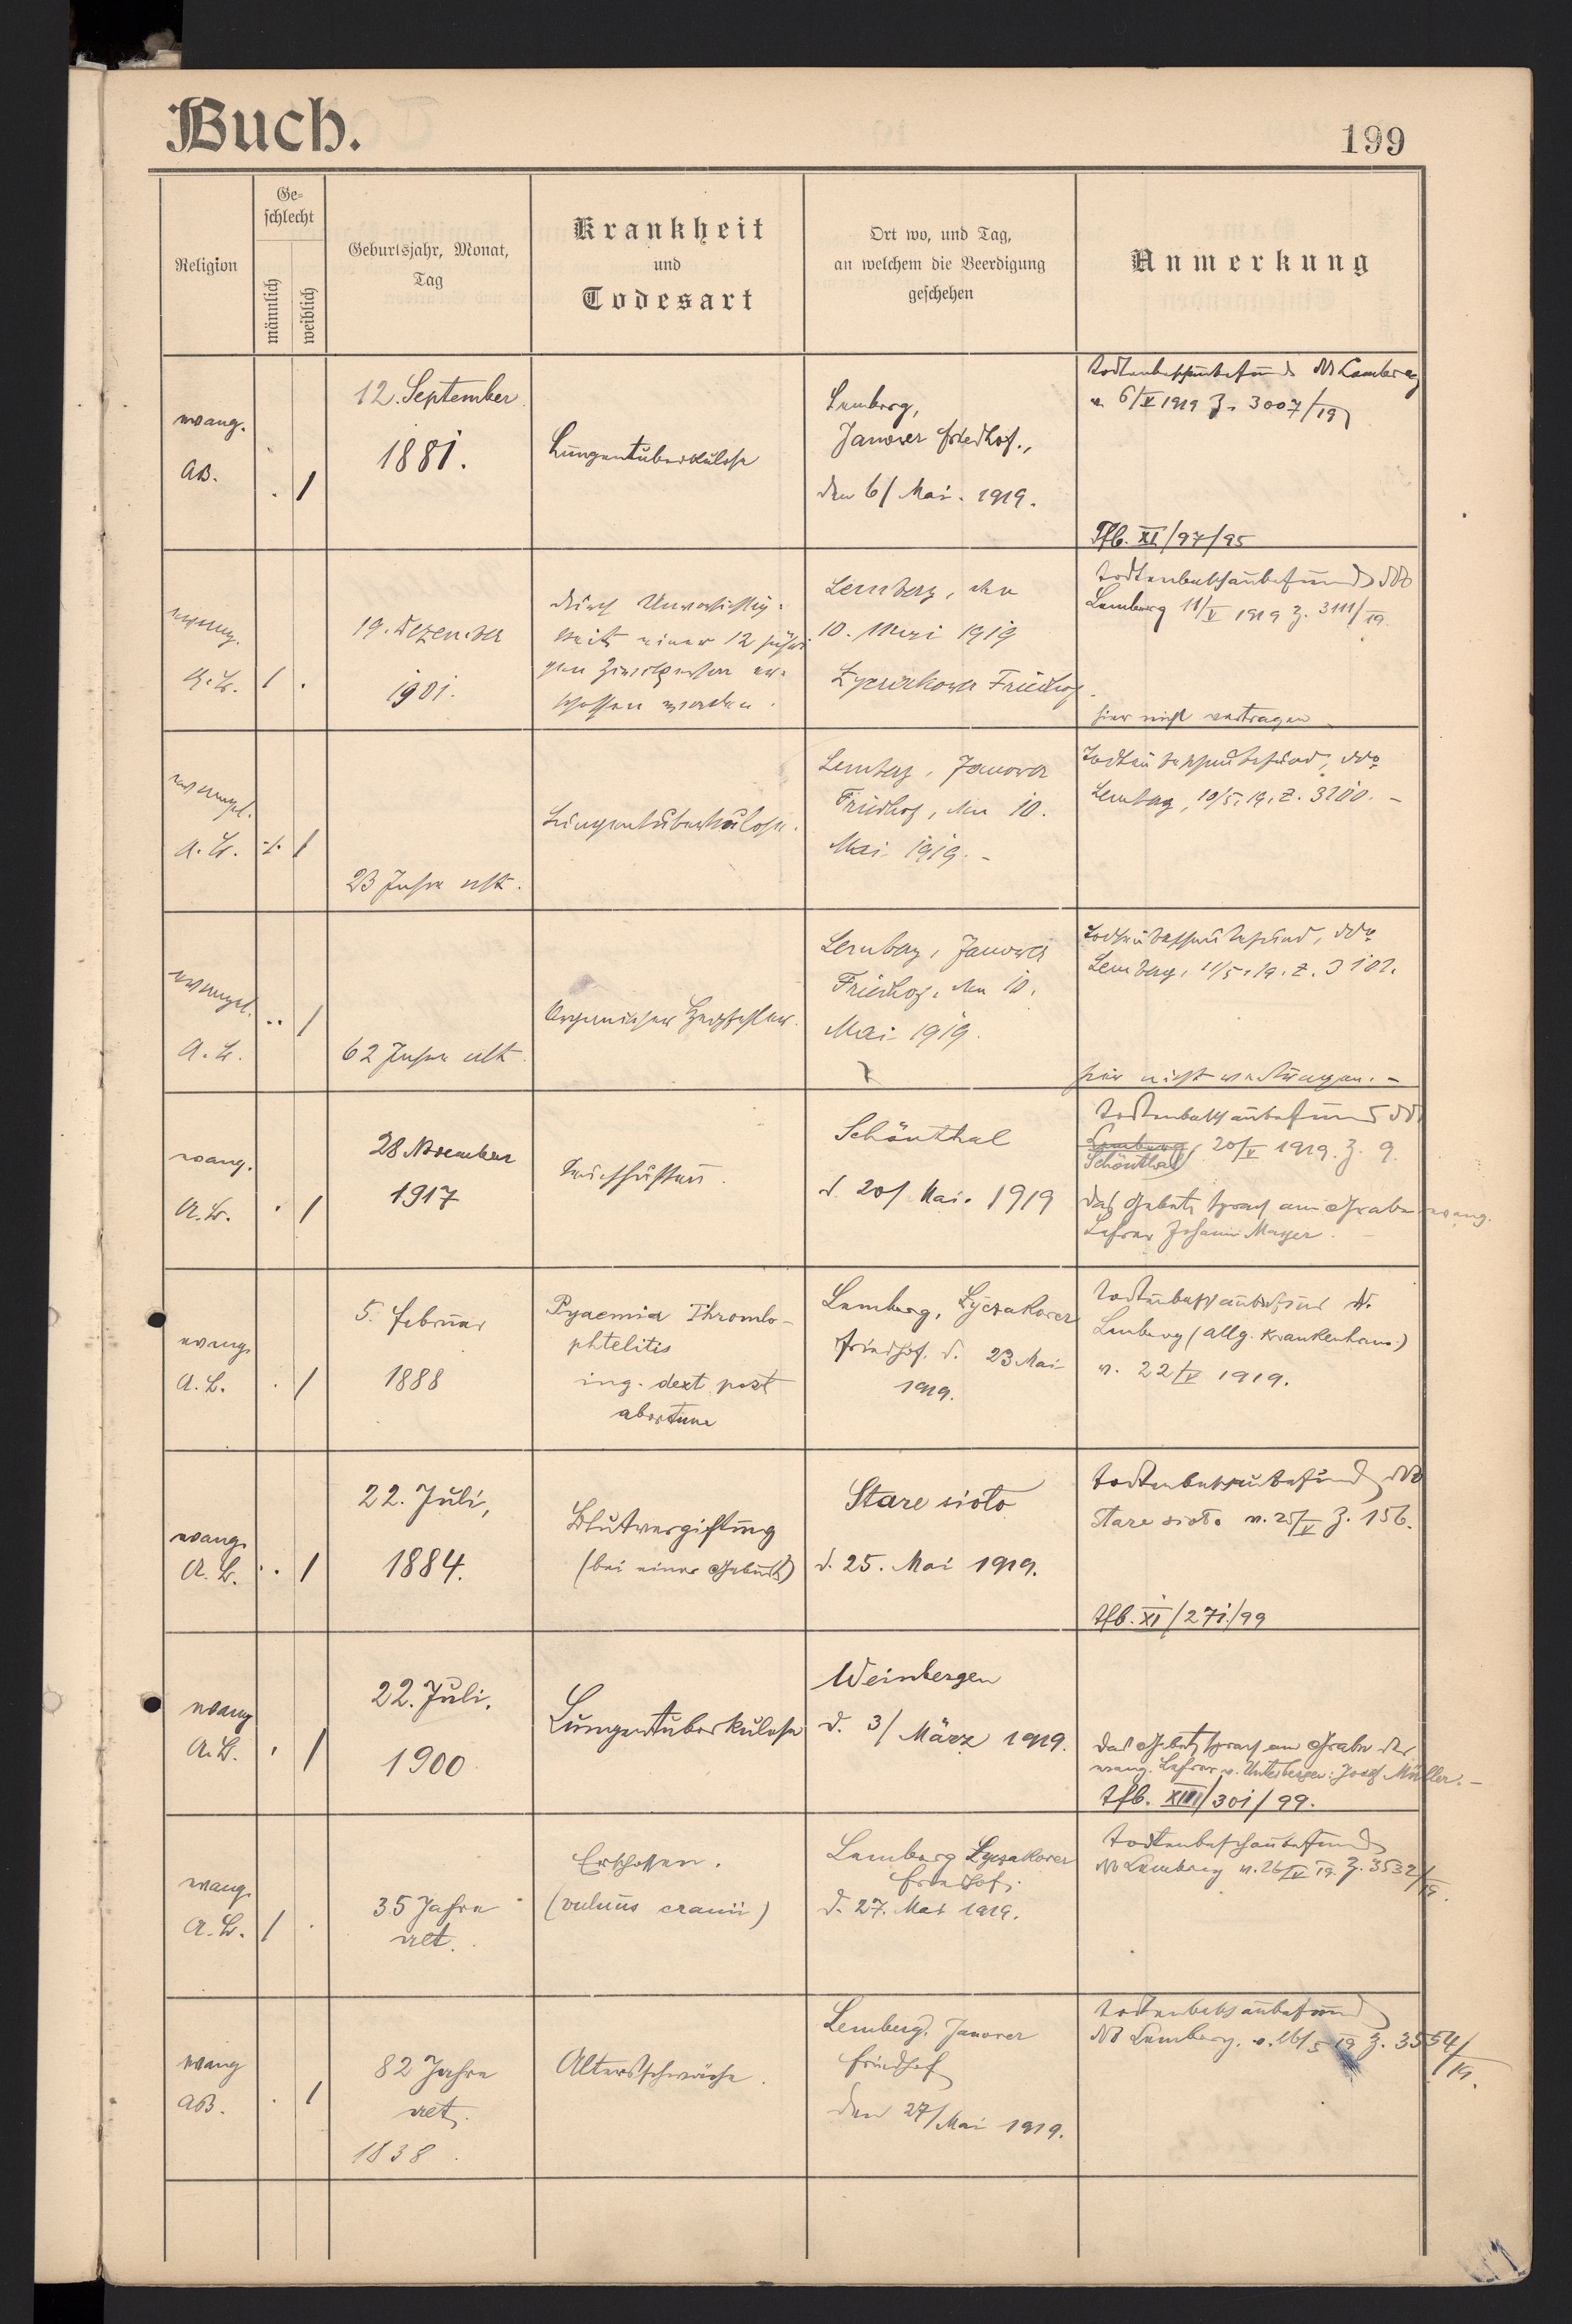 Buch.
199
Religion
Ge-
schlecht
männlich
weiblich
Geburtsjahr, Monat,
Tag
Krankheit
und
Todesart
Ort wo, und Tag,
an welchem die Beerdigung
geschehen
Anmerkung
evang.
AB.
. 1
12. September
1881.
Lungentuberkulose
Lemberg,
Janover Friedhof.,
den 6/ Mai. 1919.
Todtenbeschaubefund dd Lemberg
v. 6/V 1919 Z. 3007/19
Tfb. XI/97/95
evang.
A. B.
1 .
19. Dezember
1901.
durch Unvorsichtig-
keit einer 12 jähri
gen Zivilperson er-
schossen worden.
Lemberg, den
10. Mai 1919
Lyczakower Friedhof.
Todtenbeschaubefund ddo
Lemberg 11/V 1919 Z. 3111/19.
hier nicht vertragen
evangel.
A. B.
1
23 Jahre alt.
Lungentuberkulose.
Lemberg, Janower
Friedhof, den 10.
Mai 1919. -
Todtenbeschaubefund, ddo
Lemberg, 10/5. 19. Z. 3100. -
evangel.
A. B.
.. 1
62 Jahre alt.
Organischer Herzfehler.
Lemberg, Janower
Friedhof, den 10.
Mai 1919.
Todtenbeschaubefund, ddo
Lemberg, 11/5. 19. Z. 3101.
hier nicht vertragen. -
evang.
A. B.
. 1
28 November
1917
Keuchhusten.
Schönthal
d. 20/ Mai. 1919
Todtenbeschaubefund dd
Lemberg 20/V 1919. Z. 9.
Schönthal
das Gebet sprach am Grabe evang.
Lehrer Johann Mayer.
evang.
A. B.
. 1
5. Februar
1888
Pyaemia Thrombo-
phtelitis
ing. dext. post
abortum
Lemberg, Lyczakover
Friedhof. d. 23 Mai
1919.
Todtenbeschaubefund d.
Lemberg (allg. Krankenhaus.)
v. 22/V 1919.
evang.
A. B.
. . 1
22. Juli,
1884.
Blutvergiftung
(bei einer Geburt)
Stare sioło
d. 25. Mai 1919.
Todtenbeschaubefund ddo
Stare sioło v. 25/V Z. 156.
Tfb. XI/271/99
evang
A. B.
. 1
22. Juli.
1900
Lungentuberkulose
Weinbergen
d. 3/ März 1919.
das Gebet sprach am Grabe der
evang. Lehrer v. Unterbergen: Josef Müller. -
Tfb. XIII/301/99.
evang.
A. B.
1 .
35 Jahre
alt.
Erschossen.
(vulnus cranii)
Lemberg Lyczakover
Friedhof;
d. 27. Mai 1919.
Todtenbeschaubefund
dd Lemberg v. 26/V 19. Z. 3532/19.
evang
AB.
. 1
82 Jahre
alt.
1838.
Altersschwäche.
Lemberg. Janover
Friedhof
den 27/ Mai 1919.
Todtenbeschaubefund
dd Lemberg. v. 26/5 19 Z. 3554/19.